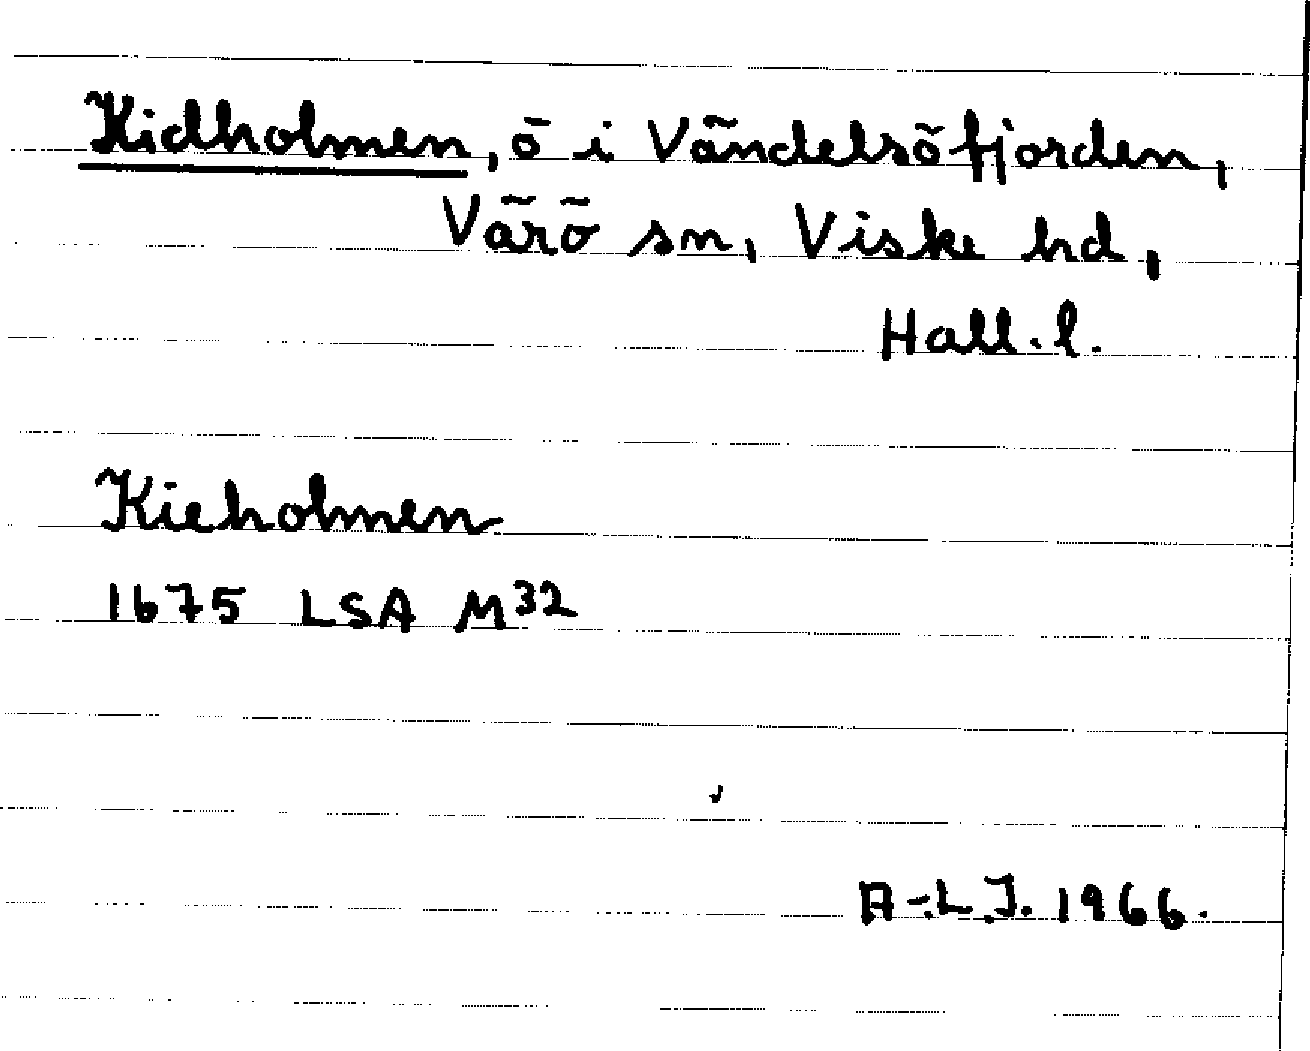 Kidholmen, ö i Vändelsöfjorden,
Värö sn, Viske hd,
Hall. l.
Kieholmen
1675 LSA M32
A-L.J. 1966.